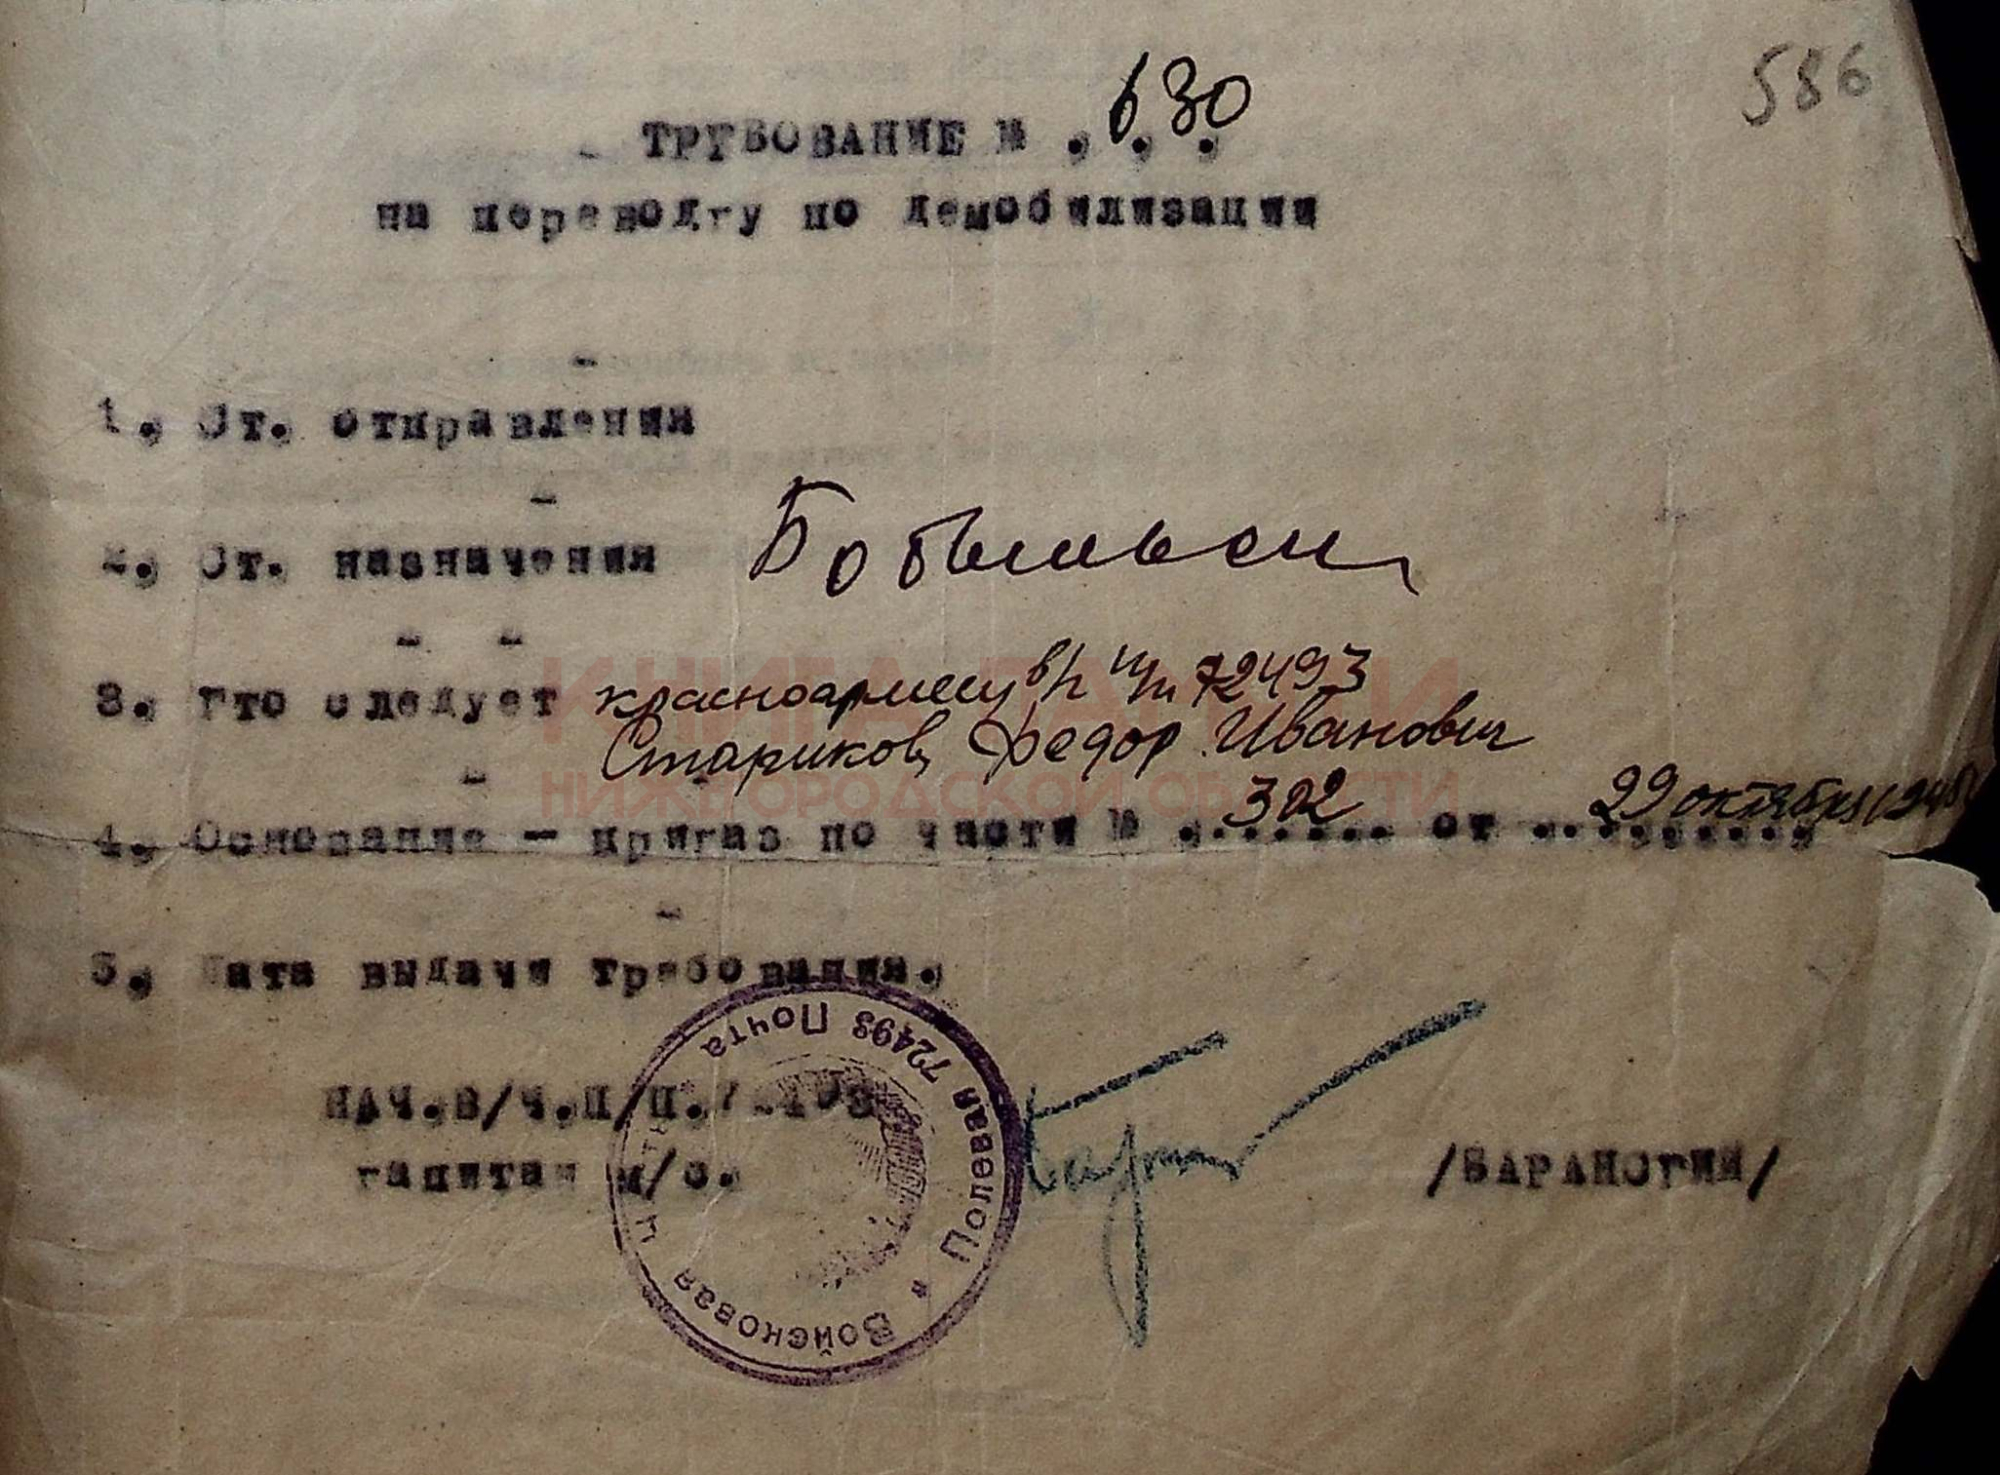 586
ТРЕБОВАНИЕ № 630
на перевозку по демобилизации
1. Ст. отправления
2. Ст. назначения
3. Кто следует красноармеец в/ч п/п 72493
Стариков Федор Иванович
4. Основание - приказ по части № 302 от 29 октября 1945
5. Дата выдачи требования.
НАЧ.В/Ч.П/П.
капитан м/с.
/БАРАНОГИЙ/
Войсковая
Полевая 72493 Почта
КНИГА ПАМЯТИ
НИЖЕГОРОДСКОЙ ОБЛАСТИ